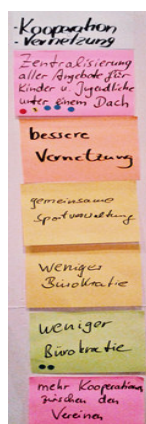 - Kooperation
- Vernetzung
Zentralisierung
aller Angebote für
Kinder u. Jugendliche
unter einem Dach
bessere
Vernetzung
gemeinsame
Sportverwaltung
Weniger
Bürokratie
weniger
Bürokratie
mehr Kooperationen
zwischen den
Vereinen